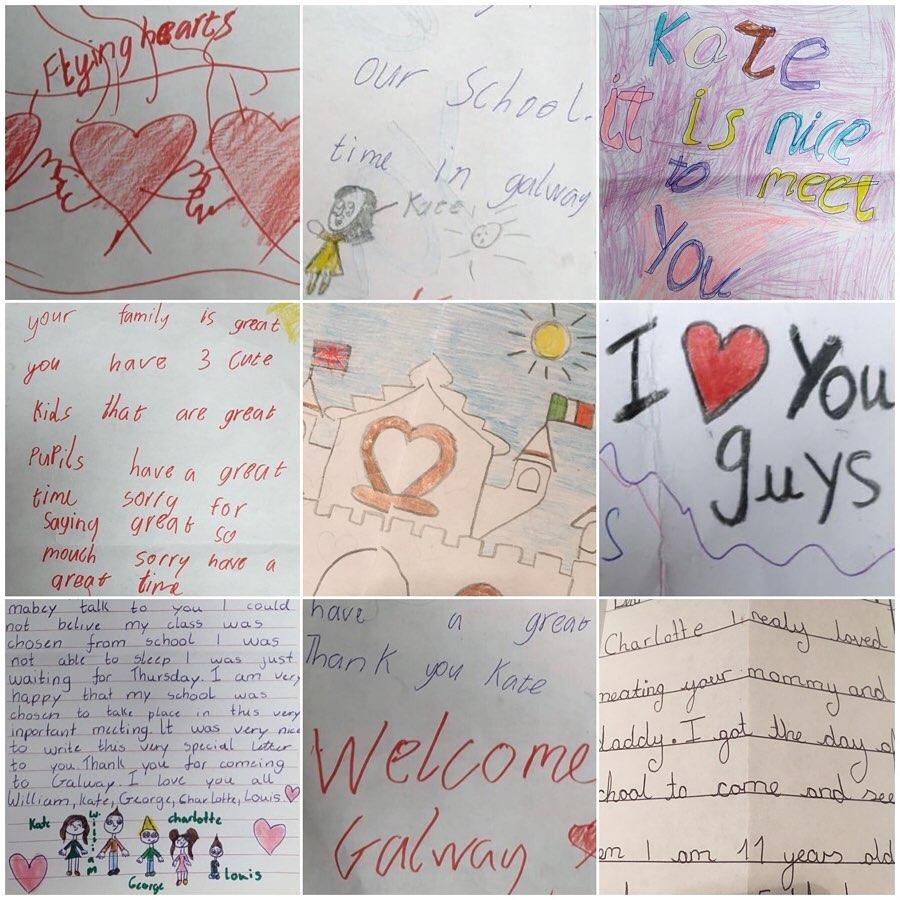 Flying hearts
our School.
time in galway
Kate
Kate
it is nice
to meet
You
your family is great
you have 3 cute
Kids that are great
PuPils have a great
time sorry for
saying great so
mouch sorry have a
great time
I You
guys
S
mabey talk to you I could
not belive my class was
chosen from school I was
not able to sleep I was just
waiting for Thursday. I am very
happy that my school was
chosen to take place in this very
inportant meeting. It was very nice
to write this very special letter
to you. Thank you for comeing
to Galway. I love you all
William, Kate, George, Charlotte, Louis.
Kate
William
charlotte
George
Louis
have a great
Thank you Kate
Welcome
Galway
Charlotte I realy loved
meating your mommy and
daddy. I got the day of
chool to come and see
en I am 11 years old